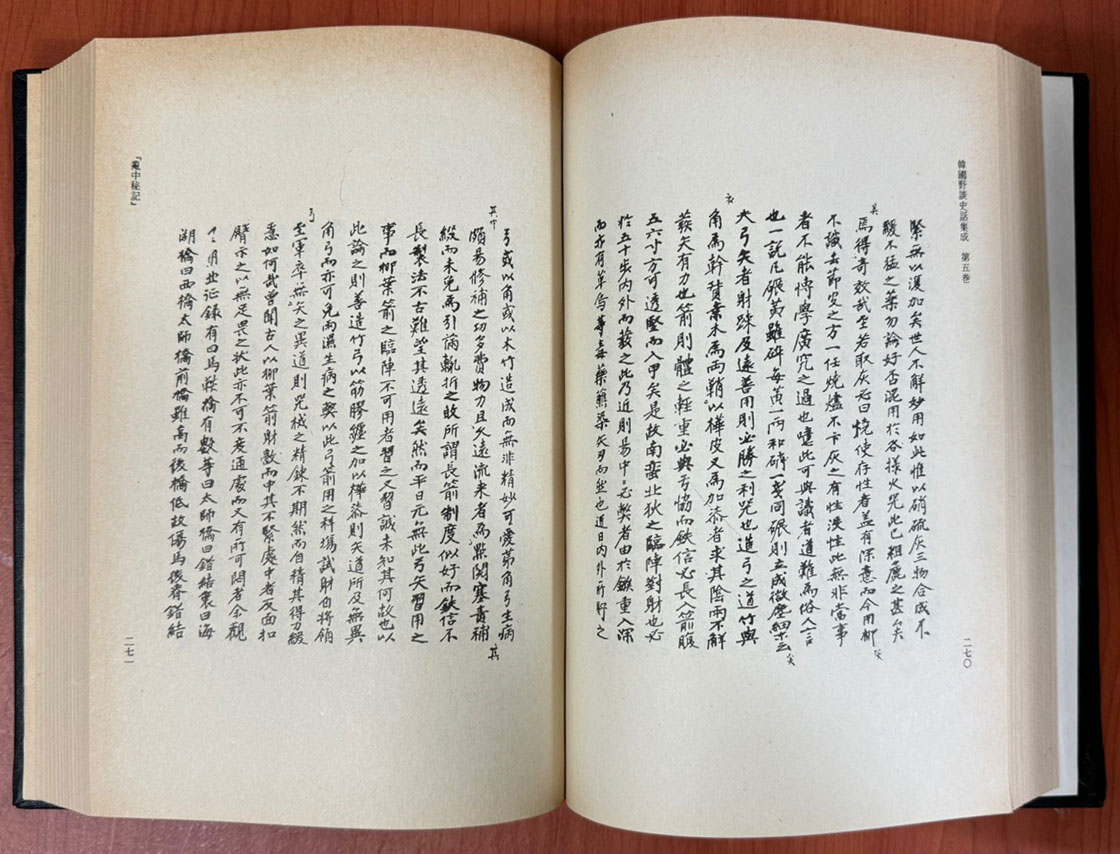 韓國野談史話集成 第五卷
緊無以復加矣世人不解妙用如此惟以硝硫灰三物合成不
駿不猛之藥勿論好否混用於各樣火咒此已粗麗之甚矣
焉得奇效哉至若取灰必曰燒使存性者盖有深意而今用柳
不識去節皮之方一任燒爐不卞灰之有性沒性此無非當事
者不能博學廣究之過也嘻此可與識者道難爲俗人言
也一說凡硫黃雖碎每黃一兩和磷一戔同碾則立成微塵細末云
大弓矢者射踈及遠善用則必勝之利咒也造弓之道竹與
角爲幹積桑木爲兩鞘以樺皮又爲加漆者求其陰雨不解
蔟矢有力也箭則體之輕重必與弓恊而鏃信必長入箭腹
五六寸方可透堅而入甲矣是故南蛮北狄之臨陣對射也必
於五十步內外而發之此乃近則易中二必獘者由於鏃重入深
而亦有草烏等毒藥薰染矢刃而然也近日內外所貯之
二七〇
弓或以角或以木竹造成而無非精妙可愛第角弓生病
頗易修補之功多費物力且欠遠流來者爲鼎関塞責補
綴而未免爲引滿輒折之敗所謂長箭制度似好而鏃信不
長製法不古難望其透遠矣然而平日元無此弓矢習用之
事而柳葉箭之臨陣不可用者習之又習誠未知其何故也以
此論之則善造竹弓以筋膠纏之加以樺漆則矢道所及無異
角弓而亦可免雨濕生病之獘以此弓箭用之科塲試射自將領
至軍卒無矢之異道則咒械之精鍊不期然而自精其得力緩
急如何哉曾聞古人以柳葉箭射數而中其不緊處中者反面扣
臂示之以無足畏之狀此亦不可不深通處而又有所可悶者余觀
月出征錄有曰馬蹀橋有數等曰太師橋曰錯結裹曰海
湖橋曰西橋太師橋前橋雖高而後橋低故傷馬後脊錯結
『亂中秘記』
二七一